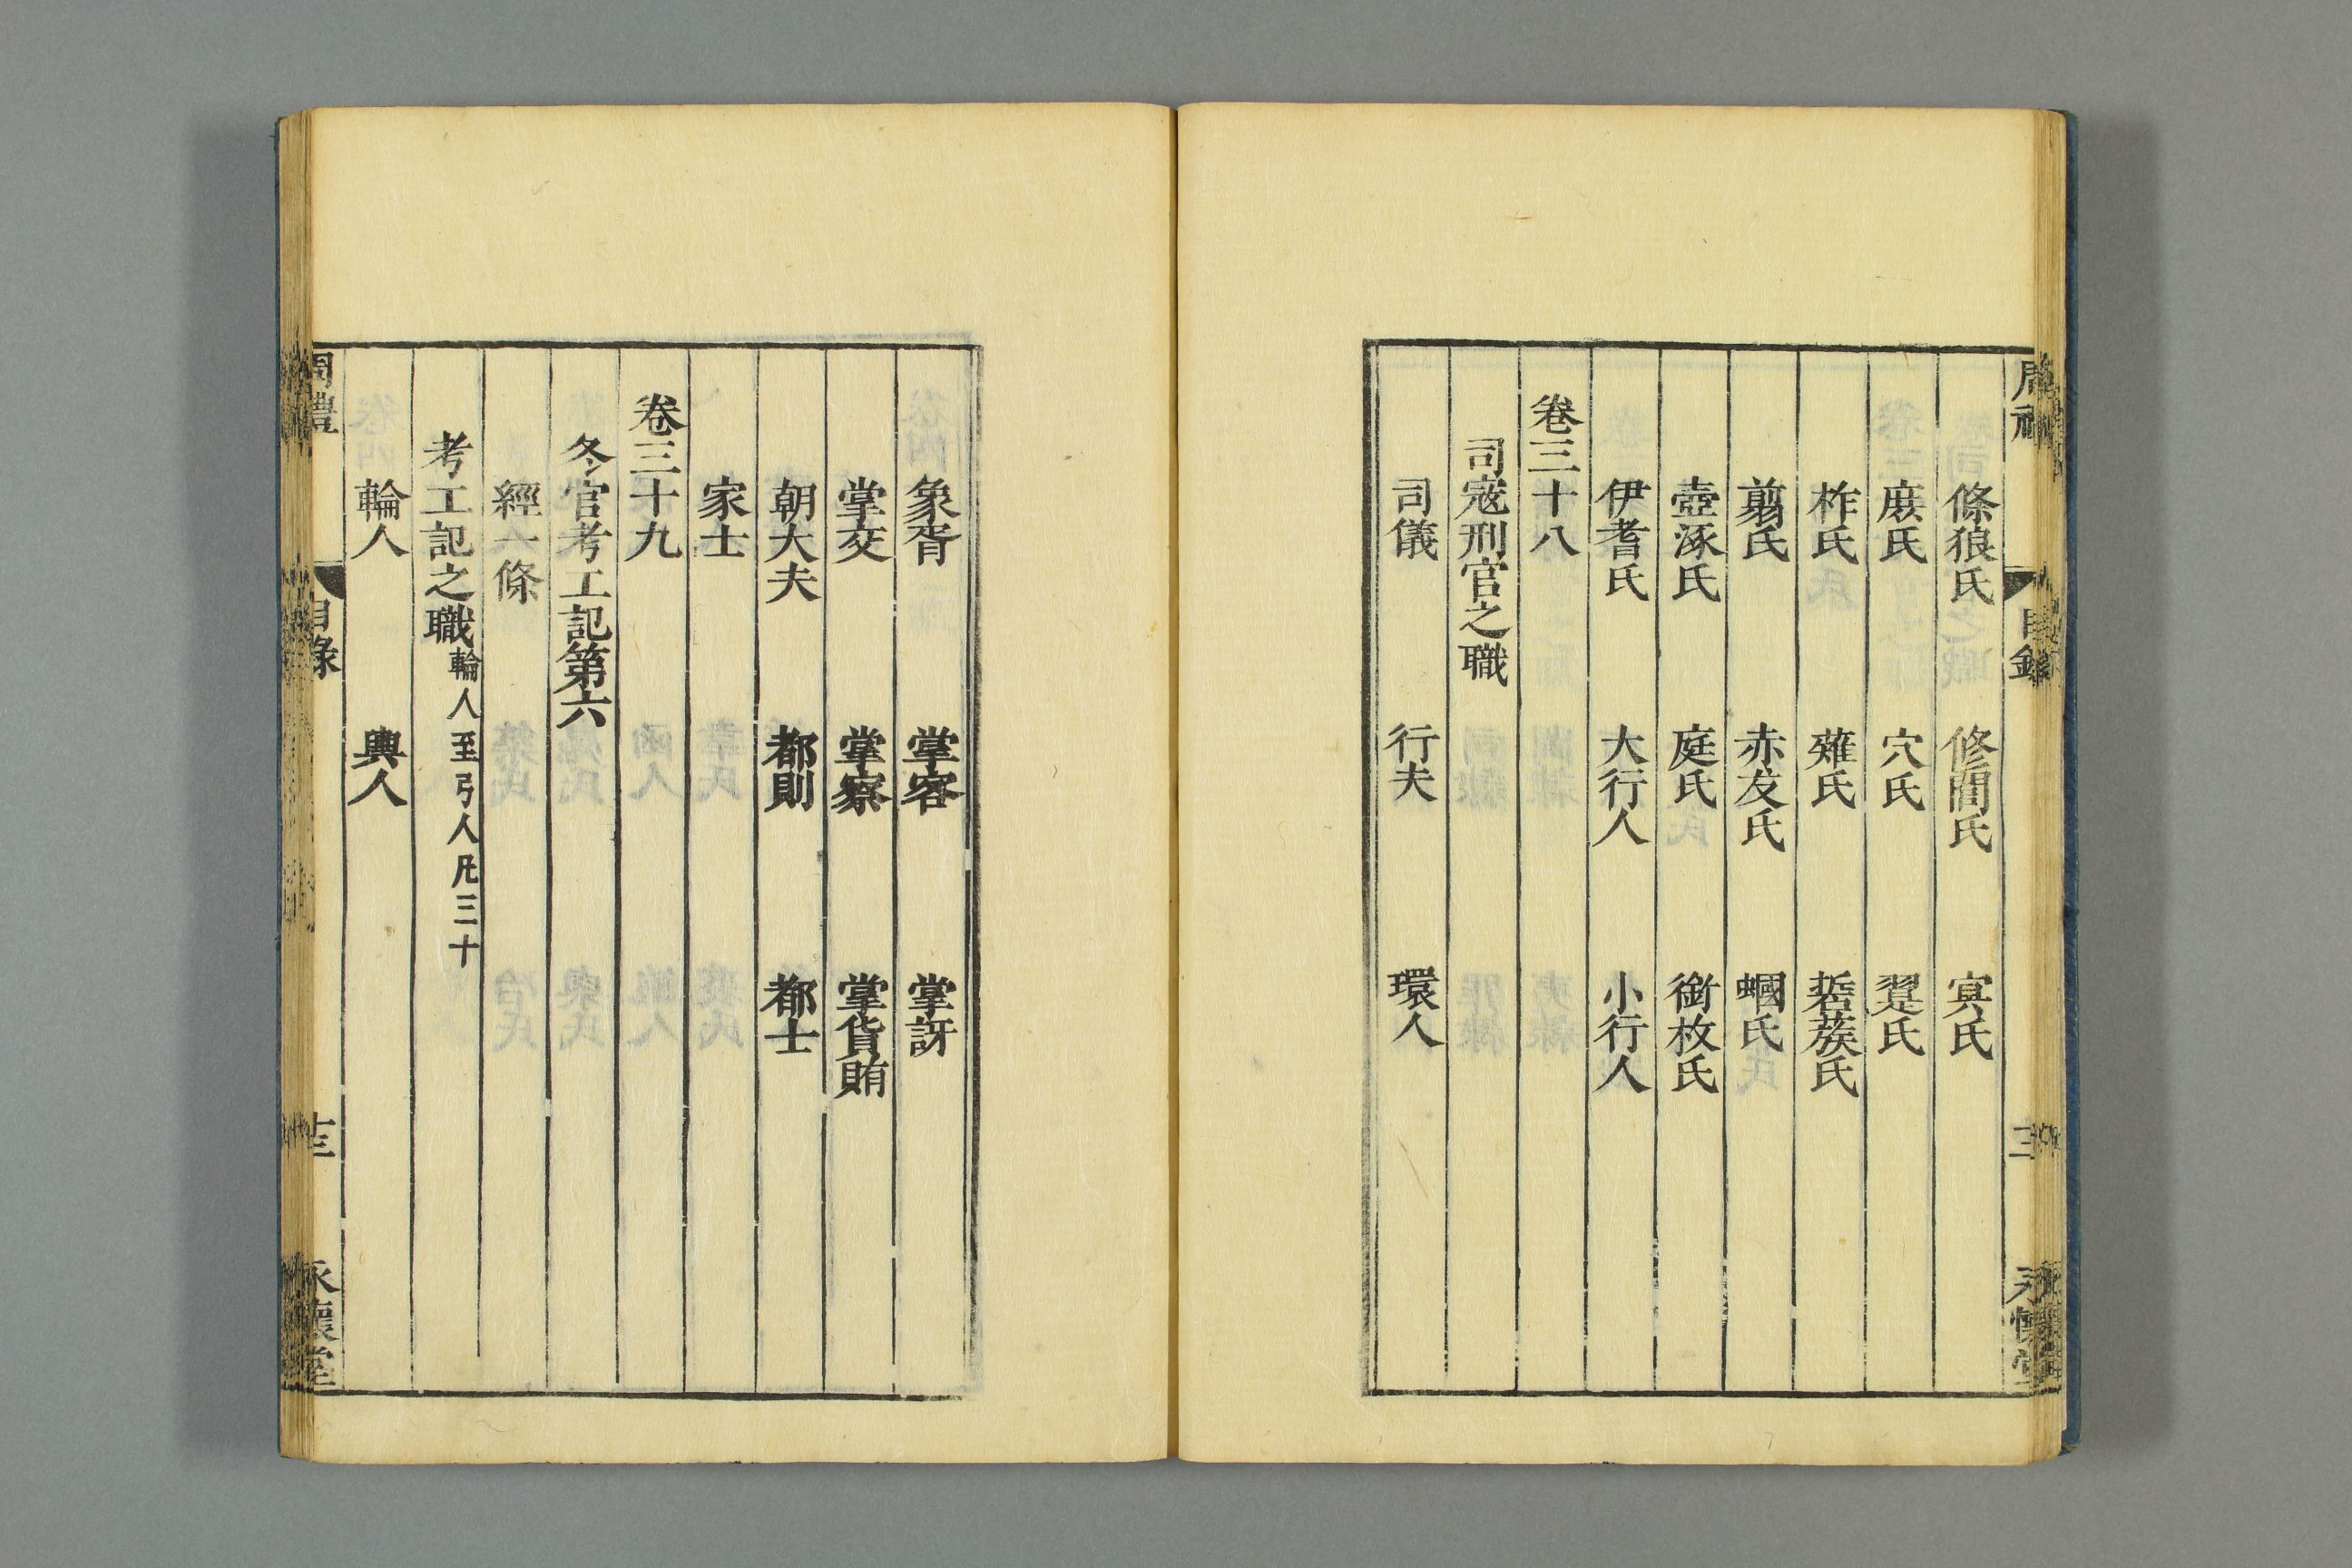 條狼氏 修閭氏 冥氏
庶氏 穴氏 翨氏
柞氏 薙氏 硩蔟氏
翦氏 赤犮氏 蟈氏
壺涿氏 庭氏 銜枚氏
伊耆氏 大行人 小行人
卷三十八
司寇刑官之職
司儀 行夫 環人
象胥 掌客 掌訝
掌交 掌察 掌貨賄
朝大夫 都則 都士
家士
卷三十九
冬官考工記第六
經一條
考工記之職 輪人至弓人凡三十
輪人 輿人
周禮 目錄 永懷堂